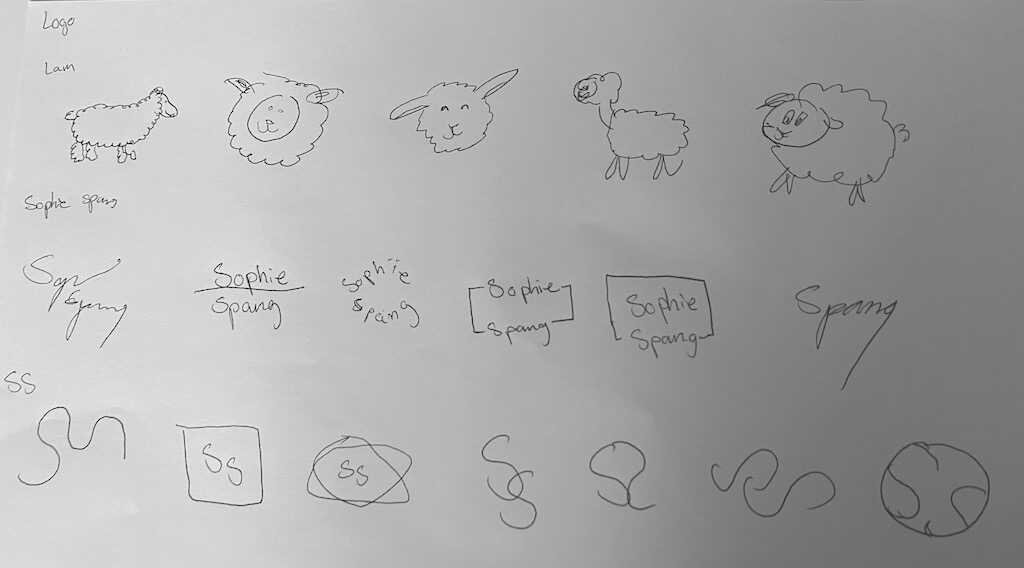 Logo
Lam
Sophie Spang
Sophie
Spang
Sophie
Spang
Sophie
Spang
Sophie
Spang
Spang
SS
SS
SS